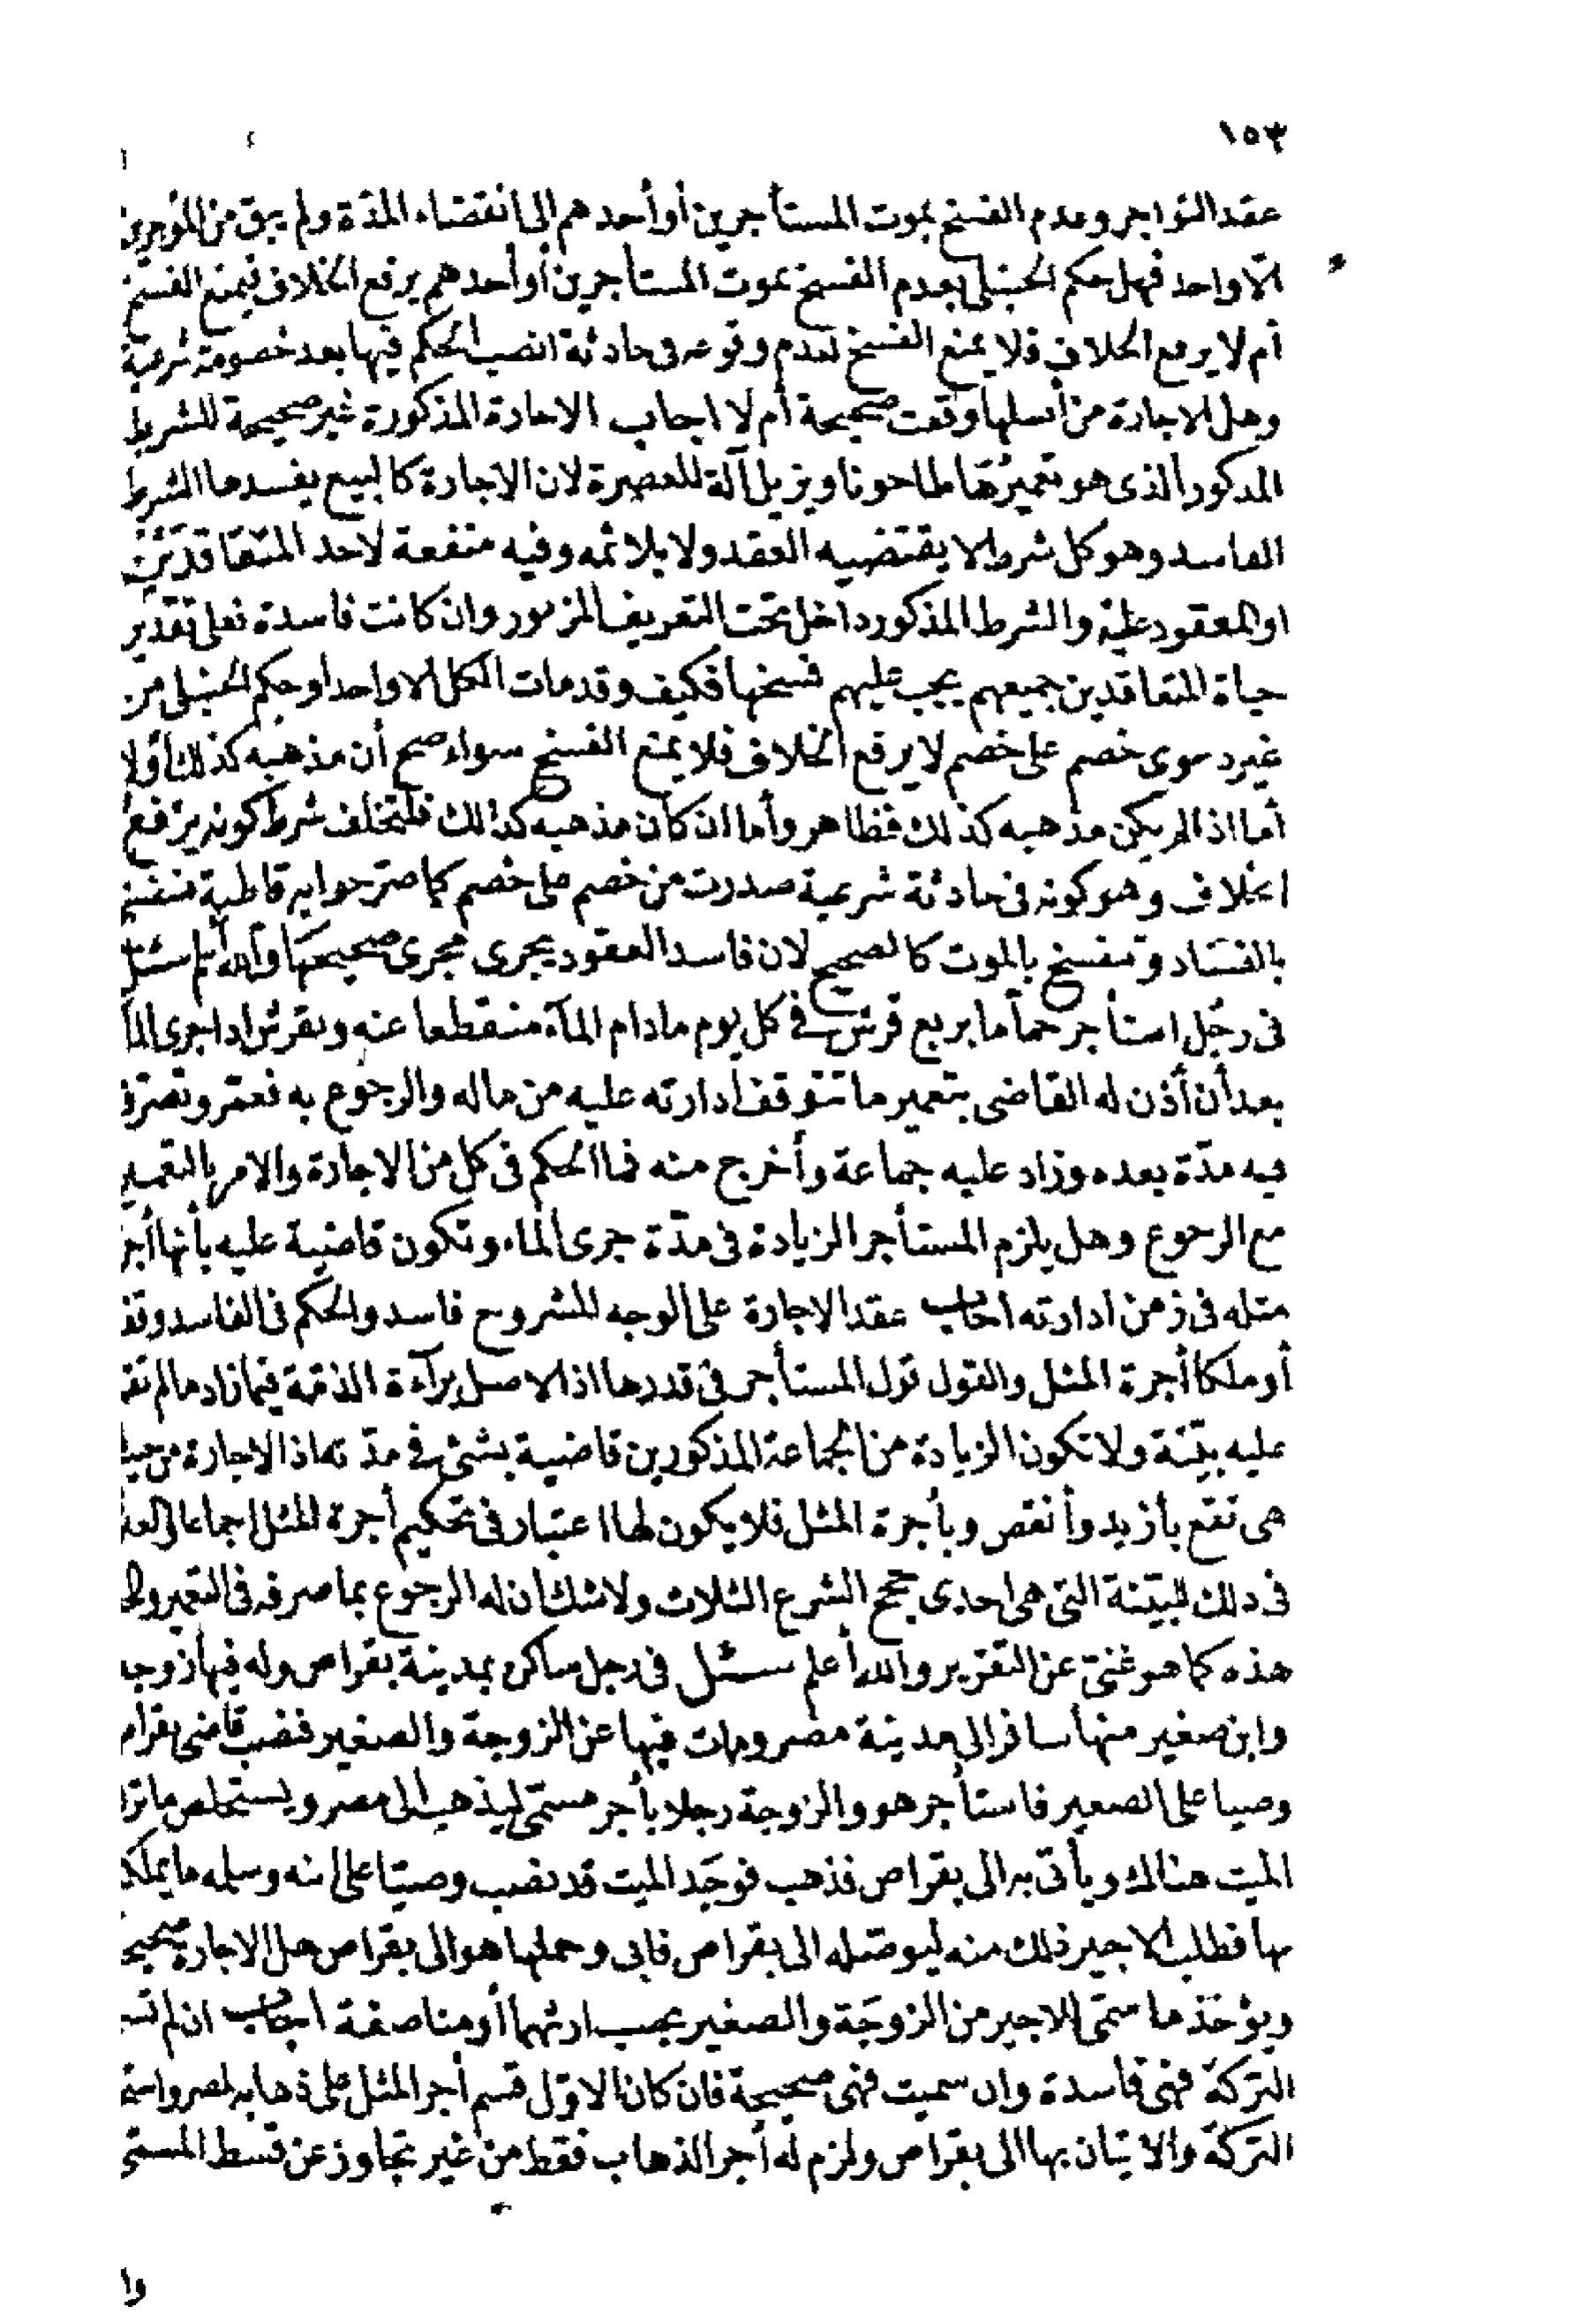 ١٥٣
عقد التواجر وعدم الفسخ بموت المستأجرين أو أحدهم الى انقضاء المدة ولم يبق من المؤجرين
الا واحد فهل حكم الحنبلى بعدم الفسخ بموت المستأجرين أو أحدهم يرفع الخلاف فيمنع الفسخ
أم لا يرفع الخلاف فلا يمنع الفسخ لعدم وقوعه فى حادثة انصب الحكم فيها بعد خصومة شرعية
وهل الاجارة من أصلها وقعت صحيحة أم لا اجاب الاجارة المذكورة غير صحيحة للشرط
المذكور الذى هو تعميرها طاحونا ويزيل آلة للعصرة لان الاجارة كالبيع يفسدها الشرط
الفاسد وهو كل شرط لا يقتضيه العقد ولا يلائمه وفيه منفعة لاحد المتعاقدين
او المعقود عليه والشرط المذكور داخل تحت التعريف المزبور وان كانت فاسدة فعلى تقدير
حياة المتعاقدين جميعهم يجب عليهم فسخها فكيف وقد مات الكل الا واحدا وحكم الحنبلى من
غير دعوى خصم على خصم لا يرفع الخلاف فلا يمنع الفسخ سواء صح أن مذهبه كذلك أولا
أما اذا لم يكن مذهبه كذلك فظاهر وأما ان كان مذهبه كذلك فلتخلف شرط كونه يرفع
الخلاف وهو كونه فى حادثة شرعية صدرت من خصم على خصم كما صرّحوا به قاطبة فتفسخ
بالفساد وتنفسخ بالموت كالصحيح لان فاسد العقود يجرى مجرى صحيحها والله أعلم سئل
فى رجل استأجر حماما بربع قرش فى كل يوم مادام المآء منقطعا عنه وبقرش اذا جرى المآ
بعد أن أذن له القاضى بتعمير ما تتوقف ادارته عليه من ماله والرجوع به فعمّر وتصرّف
فيه مدّة بعده وزاد عليه جماعة وأخرج منه فما الحكم فى كل من الاجارة والامر بالتعمير
مع الرجوع وهل يلزم المستأجر الزيادة فى مدّة جرى الماء وتكون قاضية عليه بأنها أجر
مثله فى زمن ادارته اجاب عقد الاجارة على الوجه المشروح فاسد والحكم فى الفاسد وقفا
أو ملكا أجرة المثل والقول قول المستأجر فى قدرها اذ الاصل برآءة الذمّة فيما زاد ما لم تقم
عليه بيّنة ولا تكون الزيادة من الجماعة المذكورين قاضية بشئ فى مدّته اذ الاجارة من حيث
هى تقع بأزيد وأنقص وبأجرة المثل فلا يكون لها اعتبار فى تحكيم أجرة المثل اجماعا
فى ذلك البيّنة التى هى احدى حجج الشرع الثلاث ولا شك ان له الرجوع بما صرفه فى التعمير
هذه كما هو غنىّ عن التقرير والله أعلم سئل فى رجل ساكن بمدينة بقراص وله فيها زوجة
وابن صغير منها سافر الى مدينة مصر ومات فيها عن الزوجة والصغير فنصب قاضى بقراص
وصيا على الصغير فاستأجر هو والزوجة رجلا بأجر مسمّى ليذهب الى مصر ويستخلص ما ترك
الميت هنالك ويأتى به الى بقراص فذهب فوجد الميت قد نصب وصيّا على ابنه وسلمه ما يملكه
بها فطلب الاجير ذلك منه ليوصّله الى بقراص فابى وحملها هو الى بقراص هل الاجارة صحيحة
ويؤخذ ما سمّى للاجير من الزوجة والصغير بحسب ارثهما أو مناصفة اجاب ان لم تسم
التركة فهى فاسدة وان سميت فهى صحيحة فان كان الاوّل قسم أجر المثل على ذهابه لمصر
التركة والاتيان بها الى بقراص ولزم له أجر الذهاب فقط من غير تجاوز عن قسط المسمّى
وا